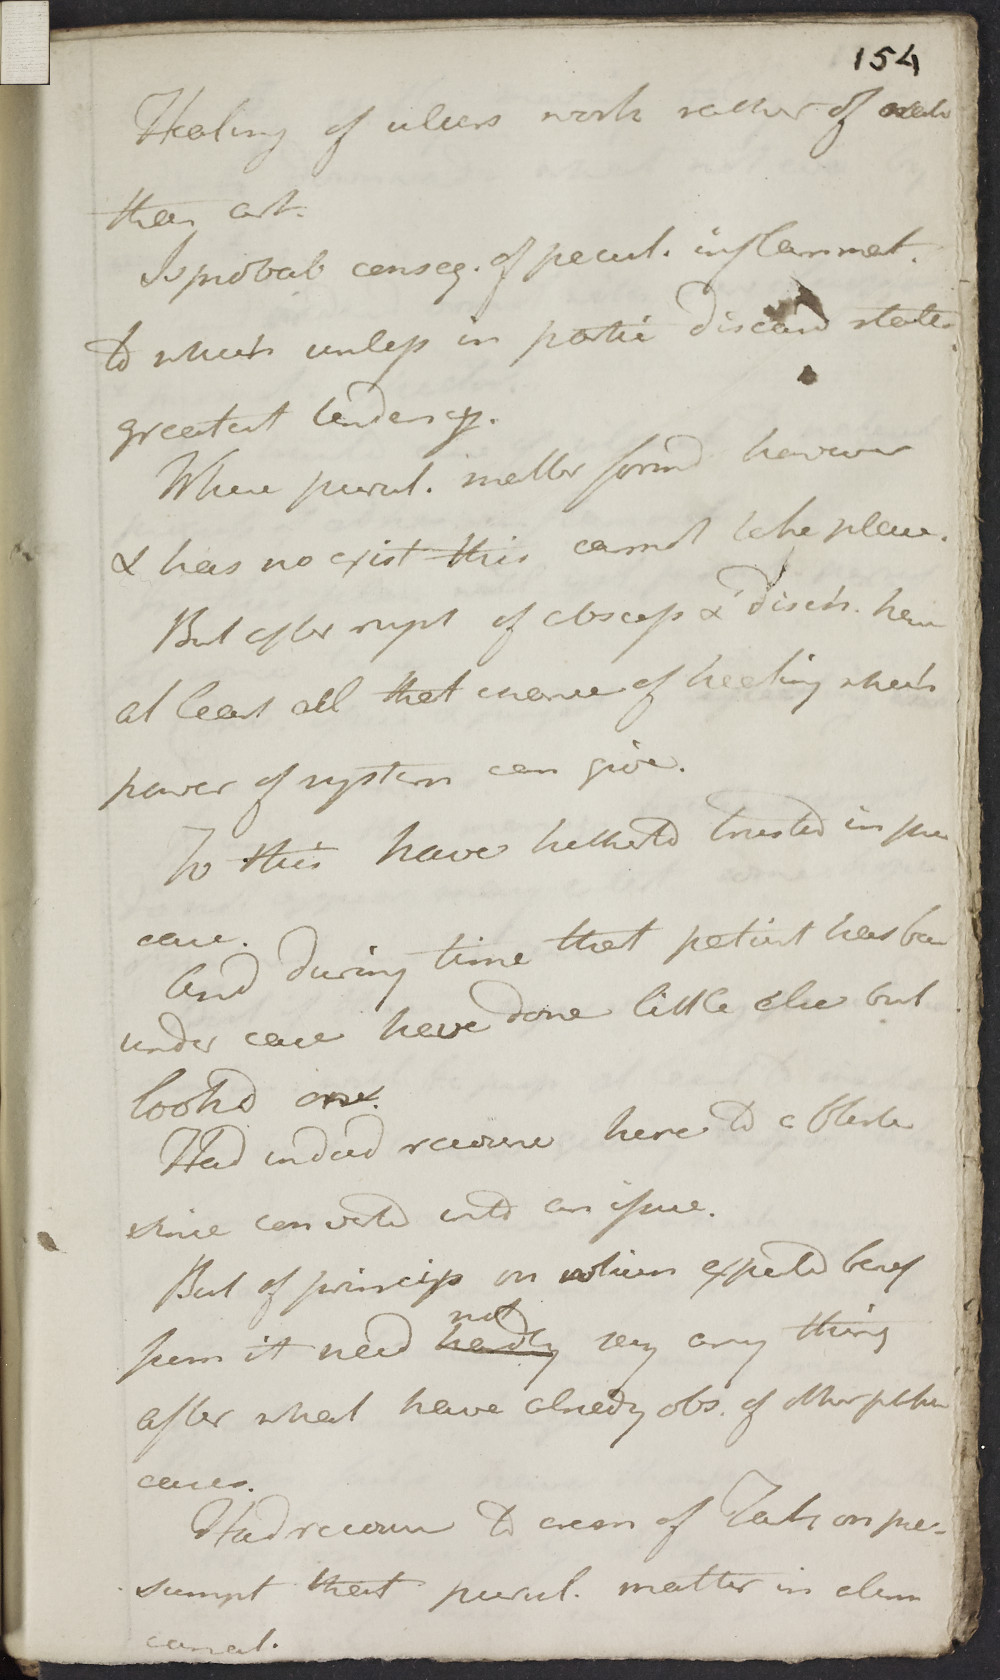 154
Healing of ulcers work rather of
than art.
Is probab conseq. of pecul. inflammat.
To which unless in partic diseasd state
greatest tendency.
Where purul. matter formd however
& has no exist this cannot take place.
But after rupt of abscess & disch. have
at least all that chance of healing which
power of system can give.
To this have hitherto trusted in pres
case.
And during time that patient has been
under care have done little else but
look'd on.
Had indeed recourse here to a blister
since converted into an issue.
But of princip on which expected benef
from it need hardly not say any thing
after what have already obs. of other
cases.
Had recourse to cream of Tart on pre-
sumpt that purul. matter in alim
canal.